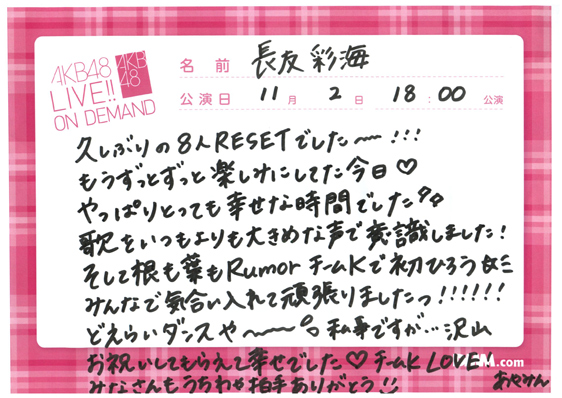 AKB48
LIVE!!
ON DEMAND
AKB
48
名前 長友彩海
公演日 11月 2日 18:00公演
久しぶりの8人RESETでした〜!!!
もうずっとずっと楽しみにしてた今日♡
やっぱりとっても幸せな時間でした
歌をいつもよりも大きめな声で意識しました!
そして根も葉もRumor チームKで初ひろう
みんなで気合い入れて頑張りましたっ!!!!!!
どえらいダンスや〜〜。私事ですが…沢山
お祝いしてもらえて幸せでした♡チームK LOVE
M.com
みなさんもうちわや拍手ありがとう!!
あやみん